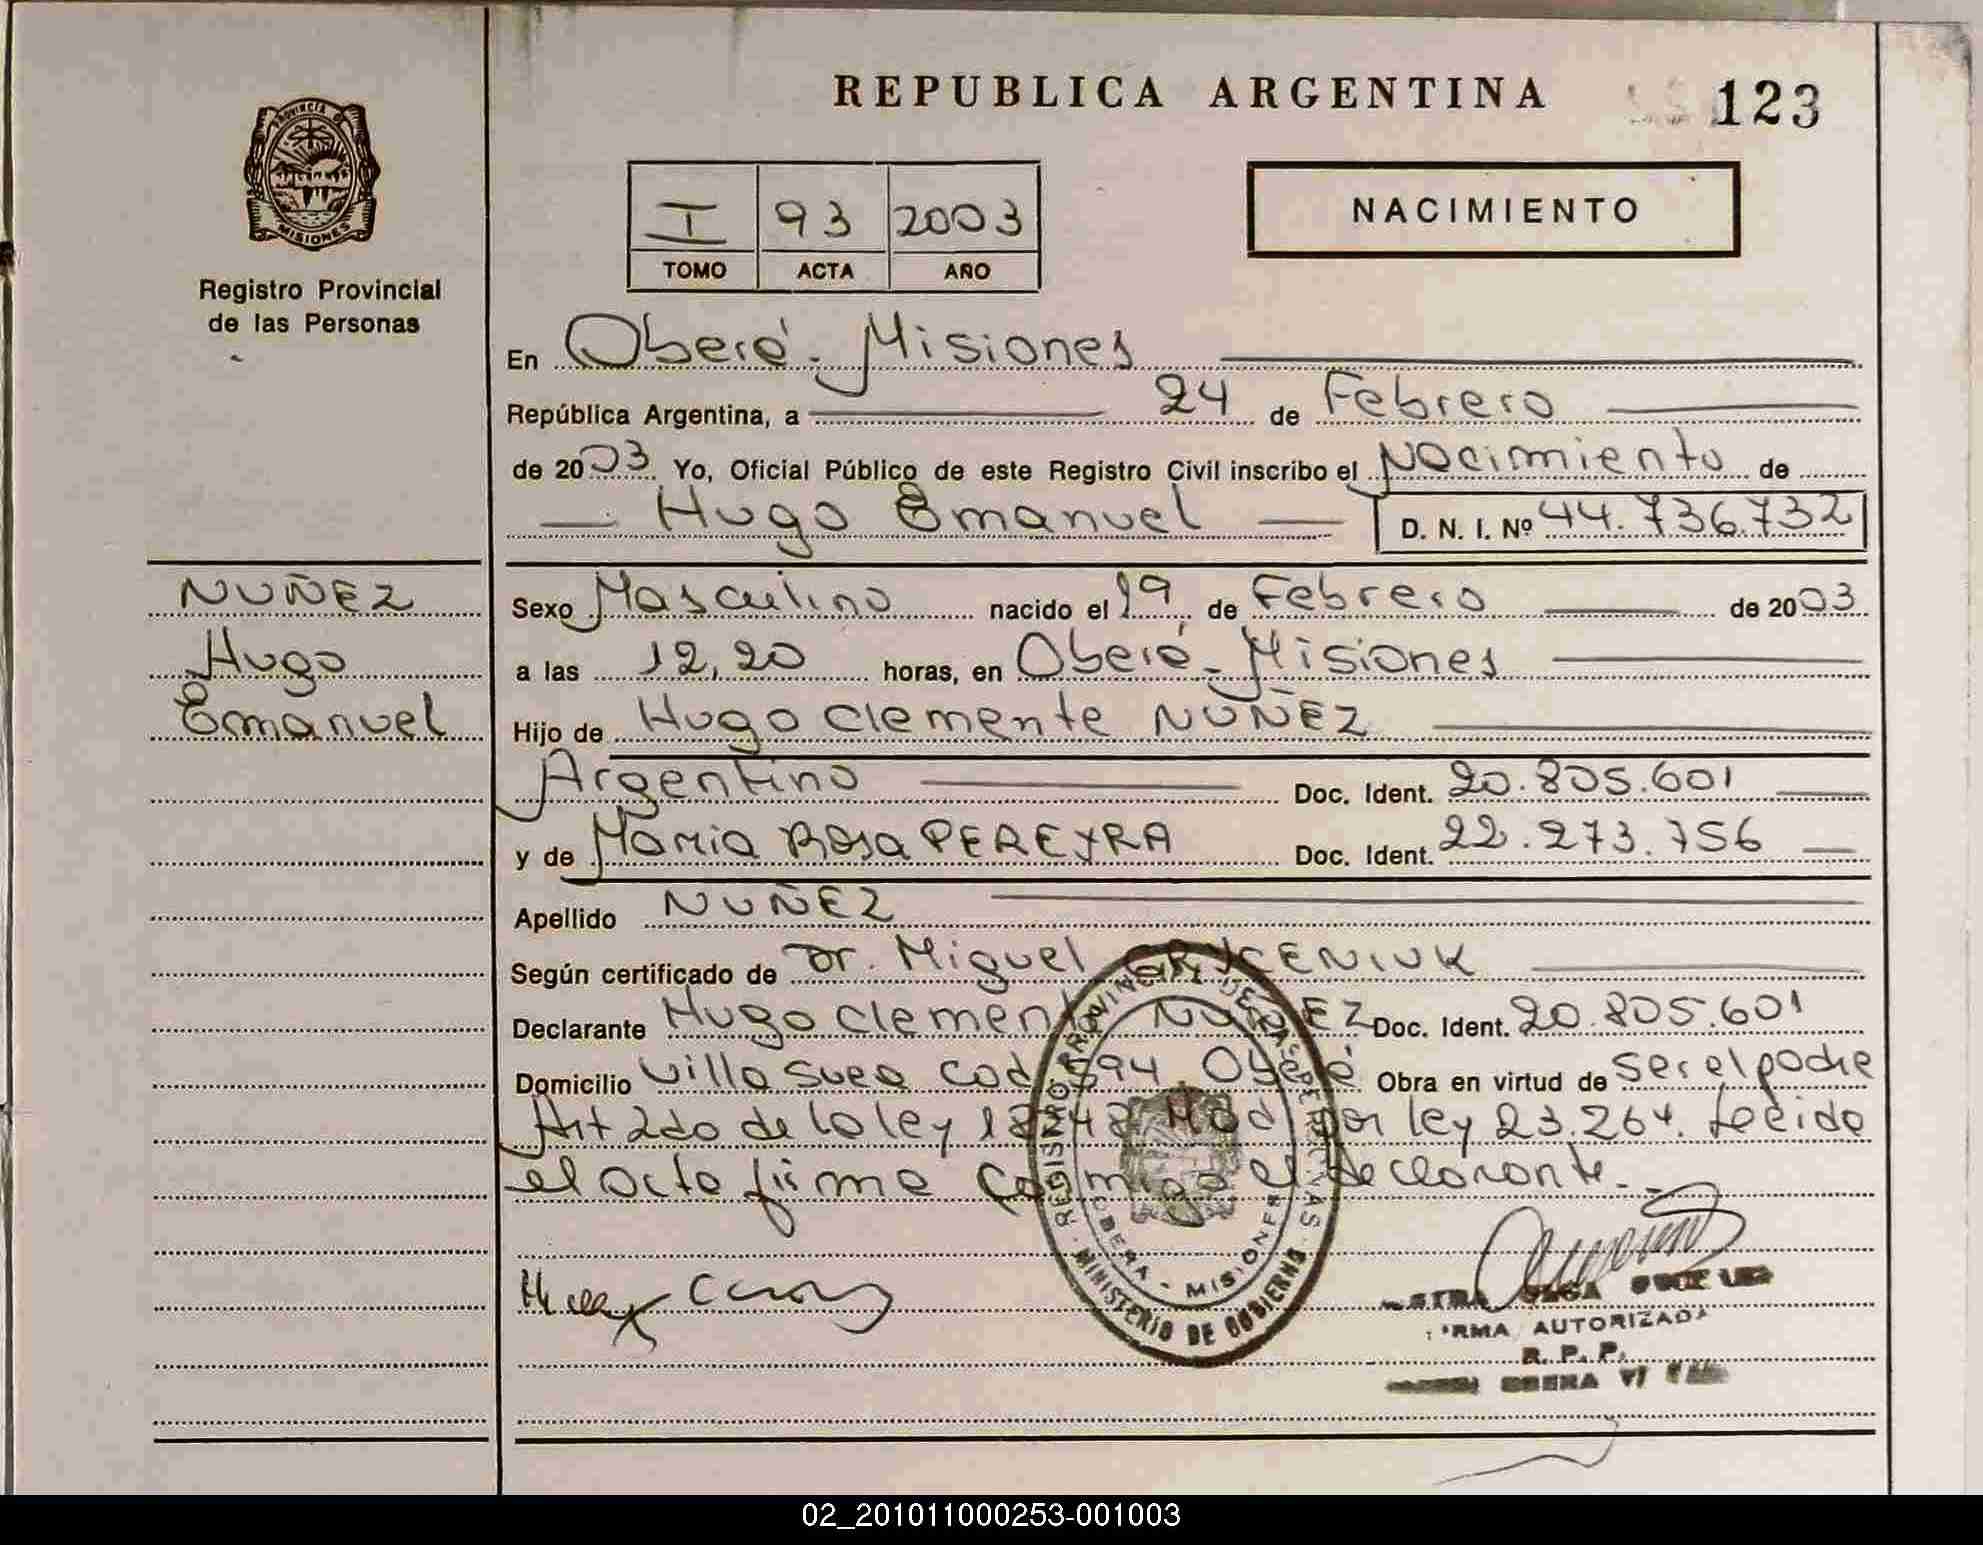 REPUBLICA ARGENTINA
123
PROVINCIA DE
MISIONES
Registro Provincial
de las Personas
I 93 2003
TOMO ACTA AÑO
NACIMIENTO
En Oberá - Misiones
República Argentina, a 24 de Febrero
de 2003 Yo, Oficial Público de este Registro Civil inscribo el Nacimiento de
Hugo Emanuel D. N. I. Nº 44.736.732
NUÑEZ
Hugo
Emanuel
Sexo Masculino nacido el 19 de Febrero de 2003
a las 12,20 horas, en Oberá - Misiones
Hijo de Hugo Clemente NUÑEZ
Argentino Doc. Ident. 20.805.601
y de María Rosa PEREYRA Doc. Ident. 22.273.756
Apellido NUÑEZ
Según certificado de Dr. Miguel
Declarante Hugo Clemente NUÑEZ Doc. Ident. 20.805.601
Domicilio Villa Obera Obra en virtud de ser el padre
Art 2do de la ley Mod por ley 23.264. Leída
el acta firma conmigo el declarante.-
REGISTRO PROVINCIAL DE LAS PERSONAS
OBERA - MISIONES
MINISTERIO DE GOBIERNO
FIRMA AUTORIZADA
R. P. P.
OBERA
02_201011000253-001003